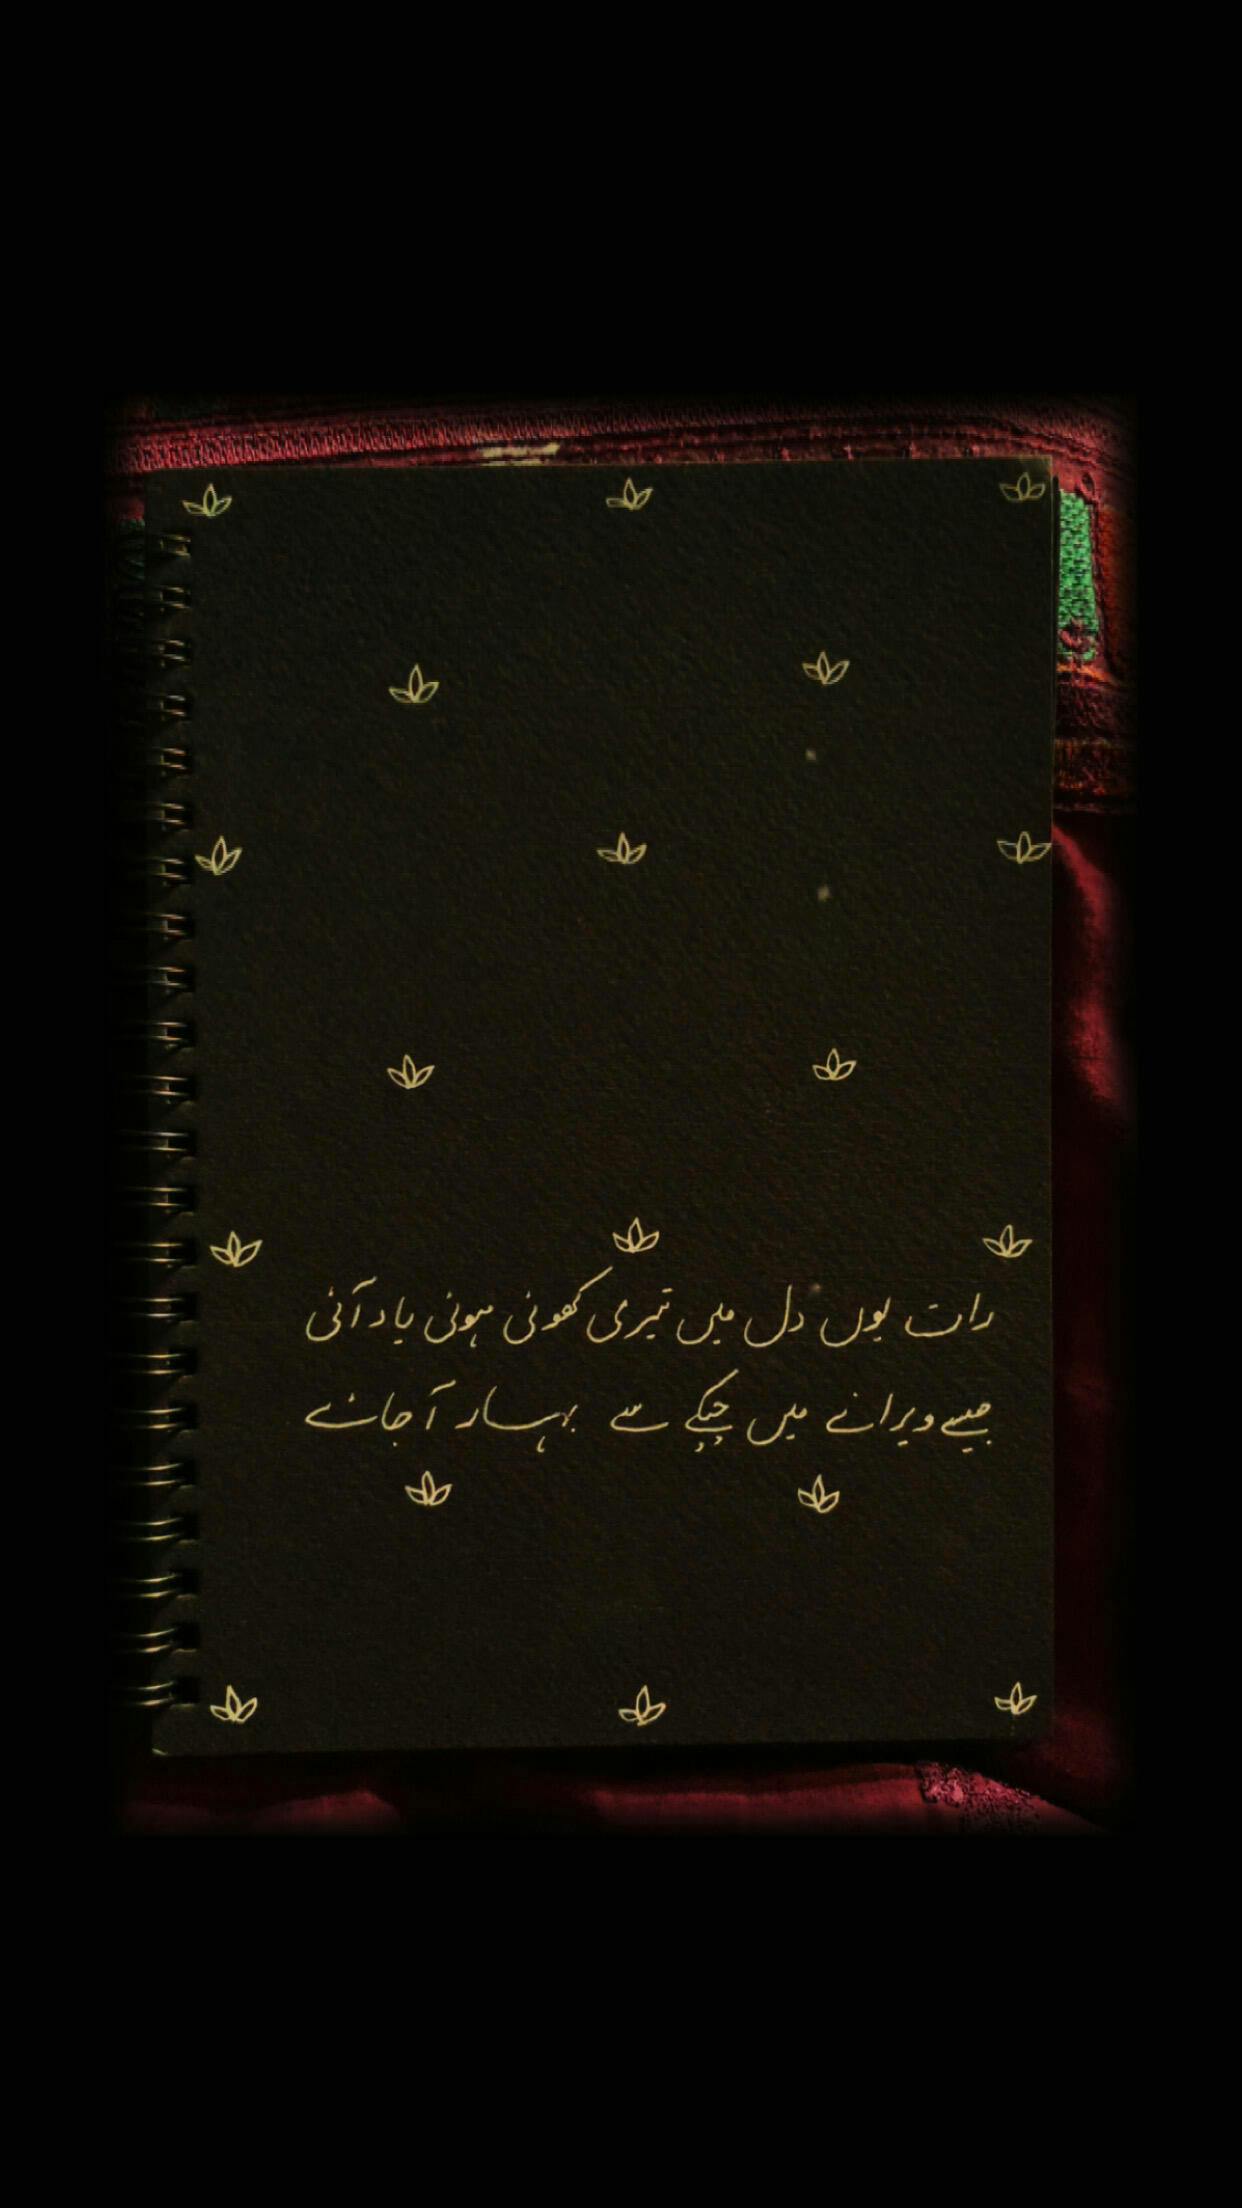 رات یوں دل میں تیری کھوئی ہوئی یاد آئی
جیسے ویرانے میں چپکے سے بہار آ جائے